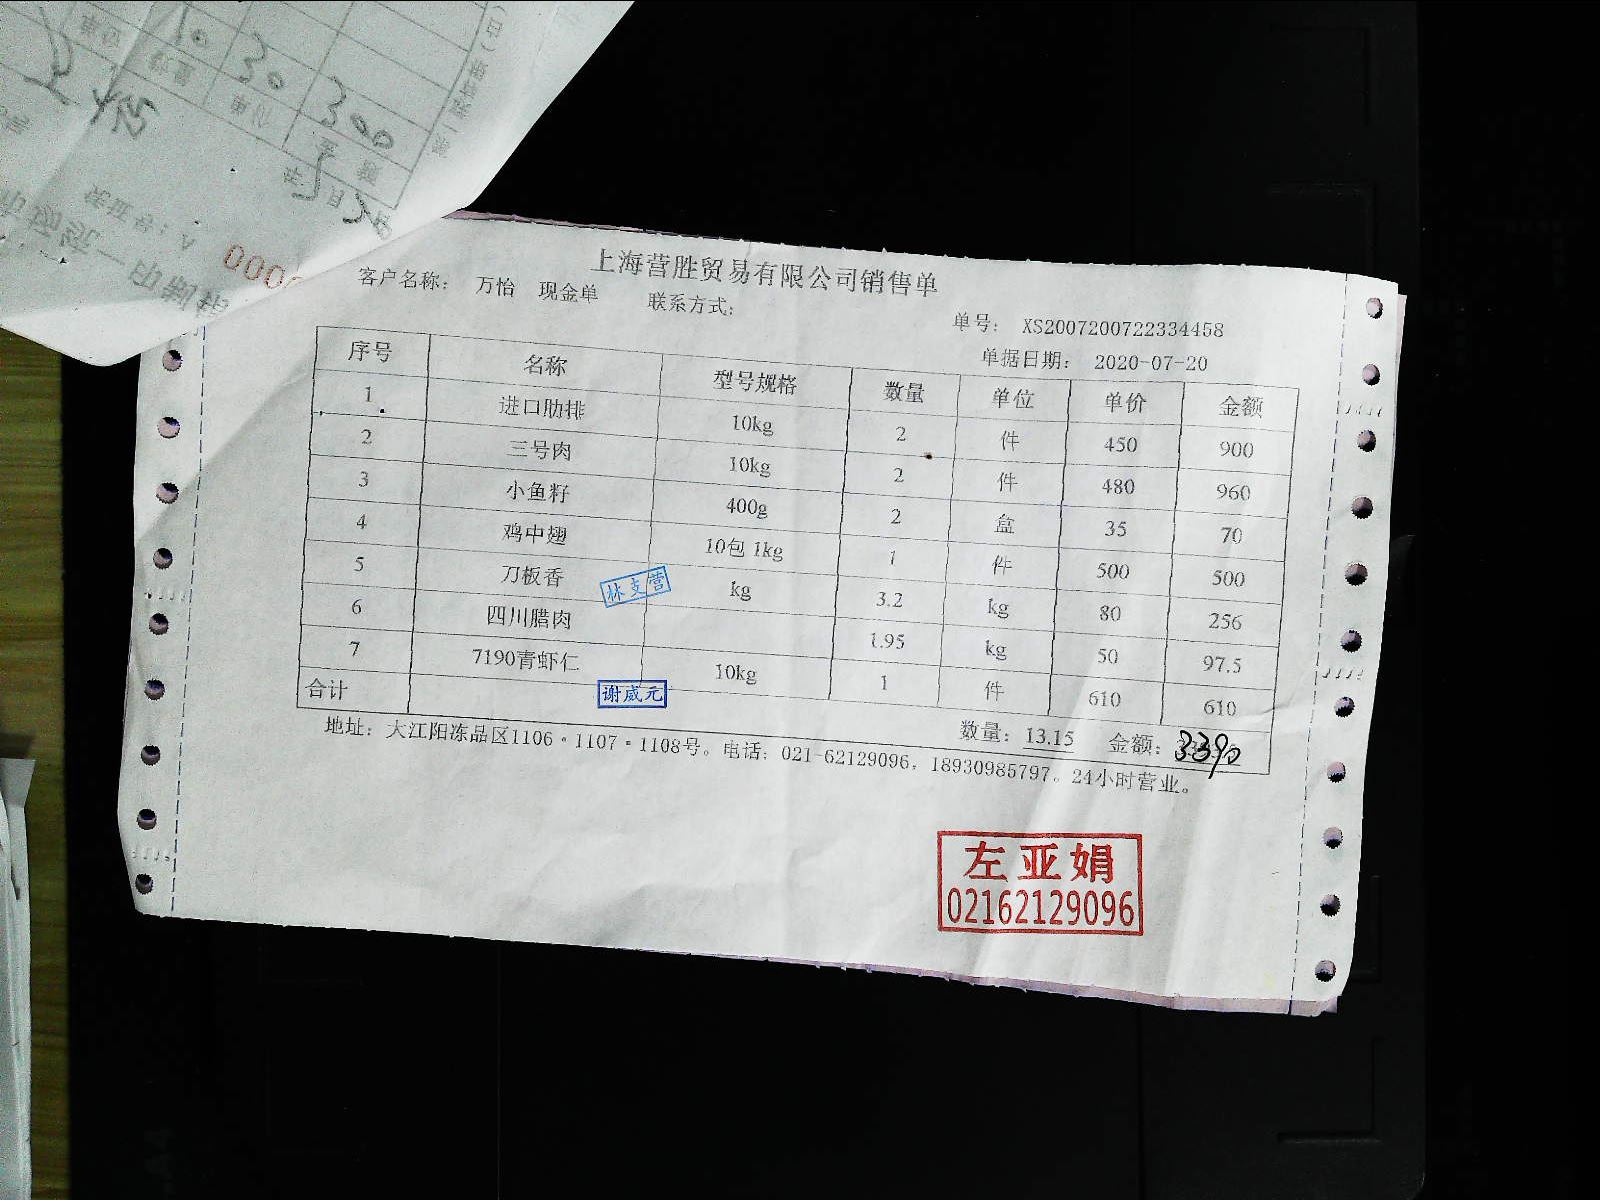 300
30
10
0000
上海营胜贸易有限公司销售单
客户名称: 万怡 现金单 联系方式:
单号: XS2007200722334458
单据日期: 2020-07-20
序号 名称 型号规格 数量 单位 单价 金额
1 进口肋排 10kg 2 件 450 900
2 三号肉 10kg 2 件 480 960
3 小鱼籽 400g 2 盒 35 70
4 鸡中翅 10包 1kg 1 件 500 500
5 刀板香 kg 3.2 kg 80 256
林支营
6 四川腊肉 1.95 kg 50 97.5
7 7190青虾仁 10kg 1 件 610 610
谢威元
合计 数量: 13.15 金额: 3390
地址: 大江阳冻品区1106·1107·1108号。电话: 021-62129096, 18930985797。24小时营业。
左亚娟
02162129096